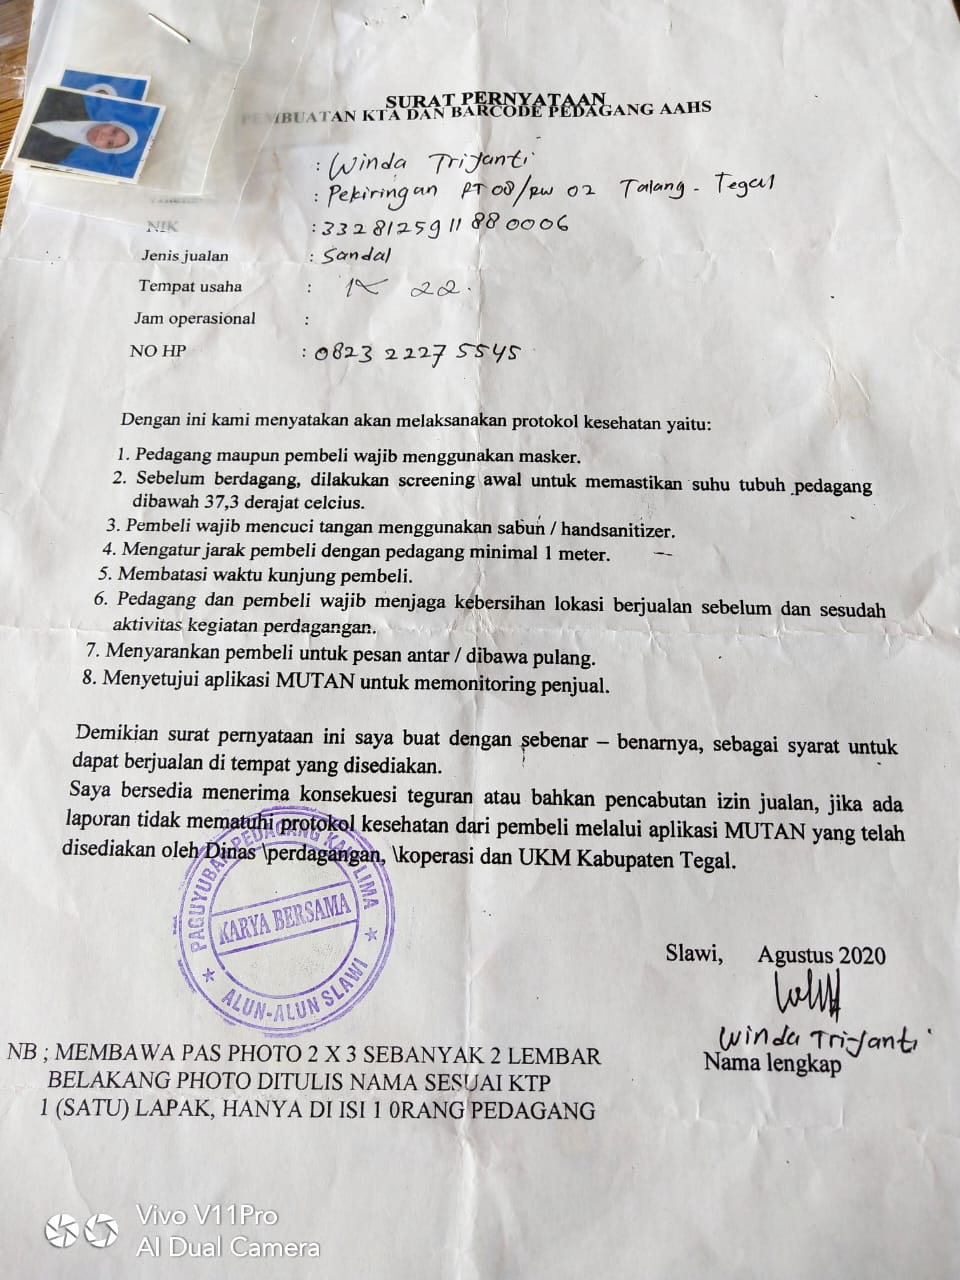 SURAT PERNYATAAN
PEMBUATAN KTA DAN BARCODE PEDAGANG AAHS
: Winda Triyanti
: Pekiringan RT 08/RW 02 Talang - Tegal
NIK : 3328125911880006
Jenis jualan : Sandal
Tempat usaha : 22.
Jam operasional :
NO HP : 0823 2227 5545
Dengan ini kami menyatakan akan melaksanakan protokol kesehatan yaitu:
1. Pedagang maupun pembeli wajib menggunakan masker.
2. Sebelum berdagang, dilakukan screening awal untuk memastikan suhu tubuh pedagang
dibawah 37,3 derajat celcius.
3. Pembeli wajib mencuci tangan menggunakan sabun / handsanitizer.
4. Mengatur jarak pembeli dengan pedagang minimal 1 meter.
5. Membatasi waktu kunjung pembeli.
6. Pedagang dan pembeli wajib menjaga kebersihan lokasi berjualan sebelum dan sesudah
aktivitas kegiatan perdagangan.
7. Menyarankan pembeli untuk pesan antar / dibawa pulang.
8. Menyetujui aplikasi MUTAN untuk memonitoring penjual.
Demikian surat pernyataan ini saya buat dengan sebenar – benarnya, sebagai syarat untuk
dapat berjualan di tempat yang disediakan.
Saya bersedia menerima konsekuesi teguran atau bahkan pencabutan izin jualan, jika ada
laporan tidak mematuhi protokol kesehatan dari pembeli melalui aplikasi MUTAN yang telah
disediakan oleh Dinas \perdagangan, \koperasi dan UKM Kabupaten Tegal.
PAGUYUBAN PEDAGANG KAKI LIMA
KARYA BERSAMA
ALUN-ALUN SLAWI
Slawi, Agustus 2020
Winda Triyanti
Nama lengkap
NB ; MEMBAWA PAS PHOTO 2 X 3 SEBANYAK 2 LEMBAR
BELAKANG PHOTO DITULIS NAMA SESUAI KTP
1 (SATU) LAPAK, HANYA DI ISI 1 0RANG PEDAGANG
Vivo V11Pro
AI Dual Camera